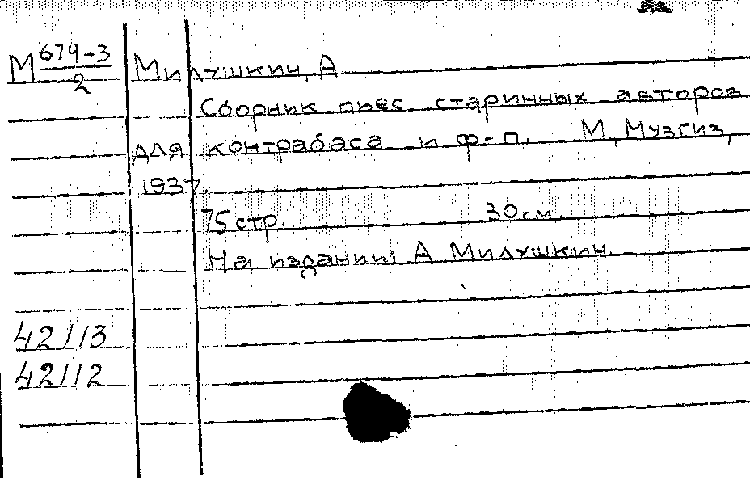 М 674-3/2 Милушкин, А
Сборник пьес старинных авторов
для контрабаса и ф-п. М, Музгиз,
1937.
75 стр. 30 см.
На издании: А Милушкин.
42113
42112